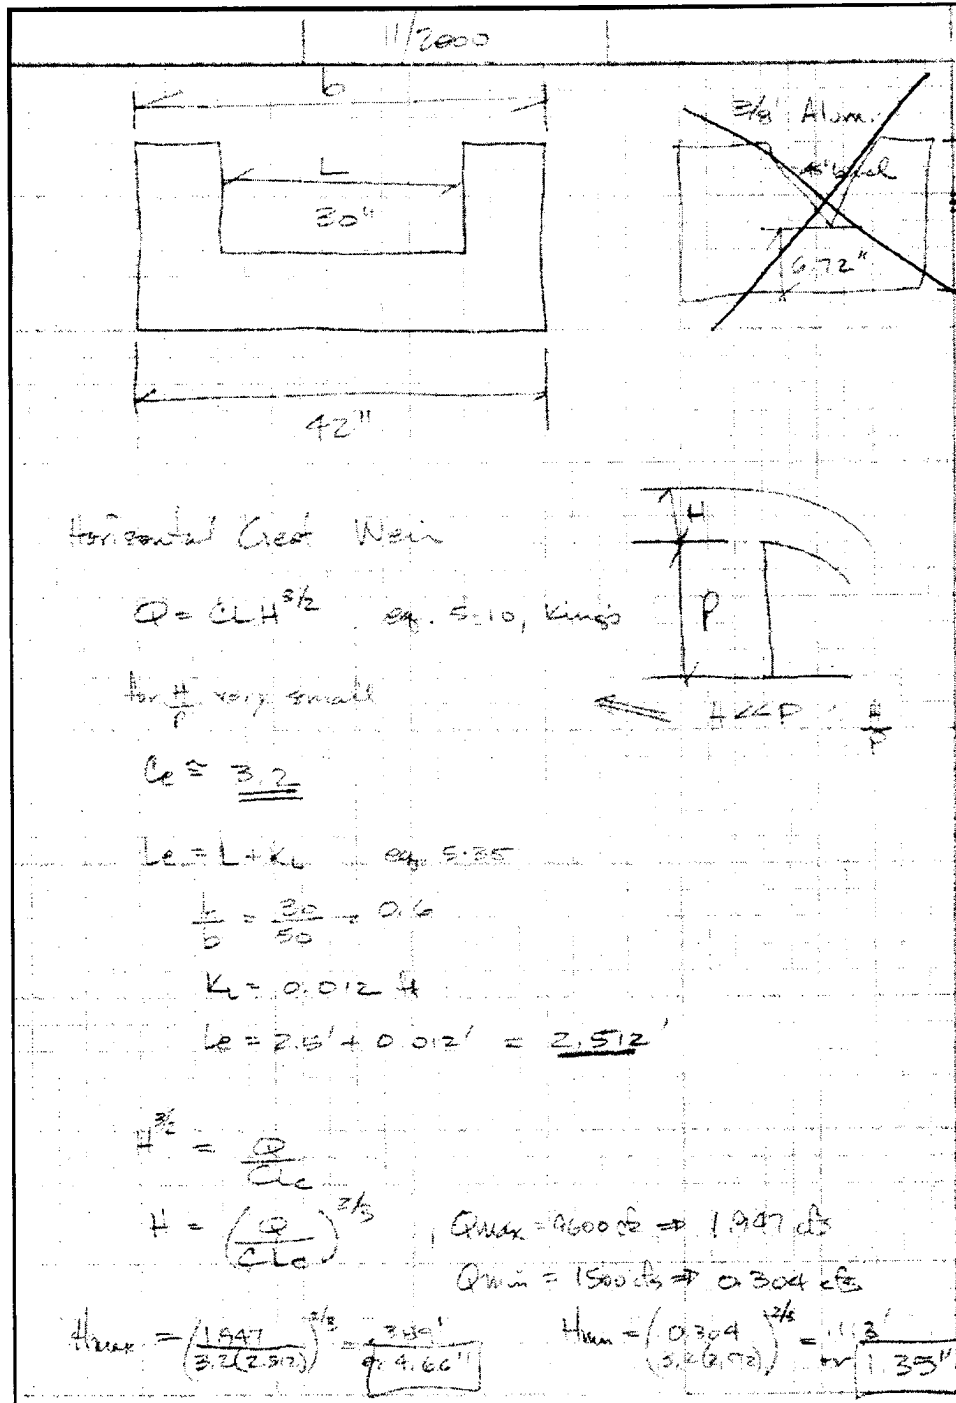 11/2000
b
L
30"
42"
3/8 Alum.
6.72"
Horizontal Crest Weir
H
Q = CLH^3/2 eq. 5-10, King's
P
for H/P very small
H<<P H/P
Ce ≅ 3.2
Le = L + KL eq. 5-35
L/b = 30/50 = 0.6
KL = 0.012 ft
Le = 2.5' + 0.012' = 2.512'
H^3/2 = Q/CLe
H = (Q/CLe)^2/3 , Qmax = 9600 cfs ⇒ 1.947 cfs
Qmin = 1500 cfs ⇒ 0.304 cfs
Hmax = (1.947/3.2(2.512))^2/3 = .389' or 4.66"
Hmin = (0.304/3.2(2.512))^2/3 = .113' or 1.35"